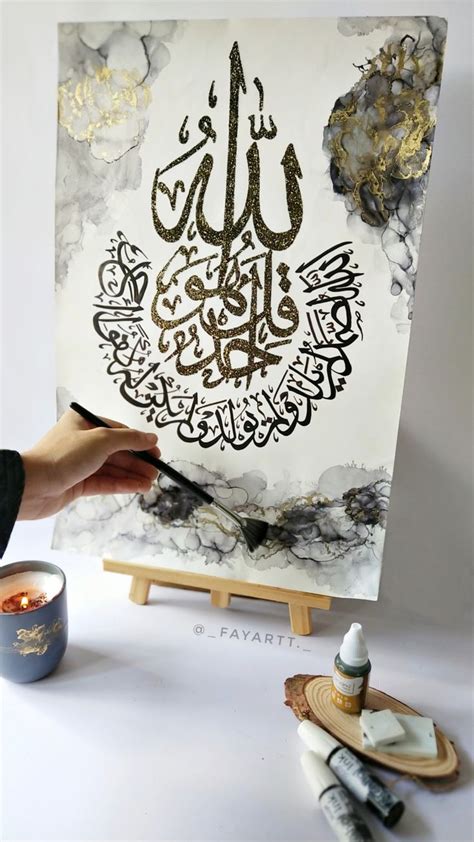 قل هو الله احد
الله الصمد لم يلد ولم يولد ولم يكن له كفوا أحد
@_FAYARTT._
ink